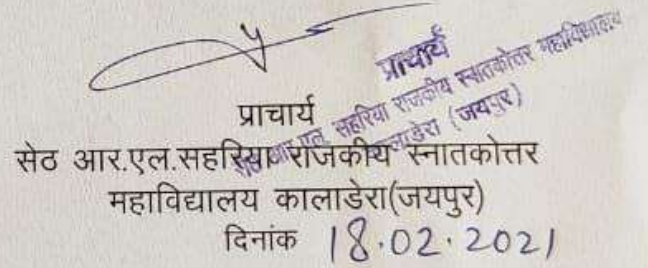 प्राचार्य
सेठ आर.एल. सहरिया राजकीय स्नातकोत्तर महाविद्यालय
कालाडेरा (जयपुर)
प्राचार्य
सेठ आर.एल.सहरिया राजकीय स्नातकोत्तर
महाविद्यालय कालाडेरा(जयपुर)
दिनांक 18.02.2021